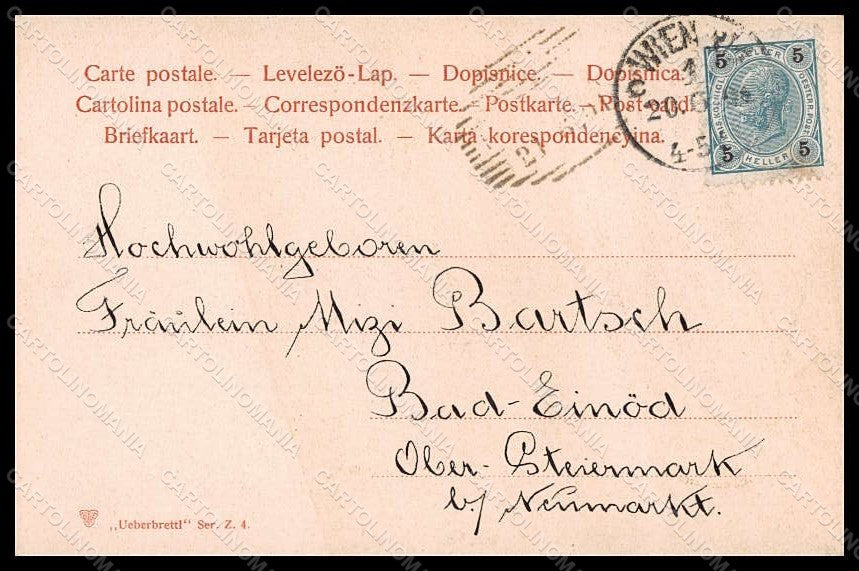 Carte postale. — Levelezö-Lap. — Dopisnice. — Dopisnica.
Cartolina postale. — Correspondenzkarte. — Postkarte. — Post card.
Briefkaart. — Tarjeta postal. — Karta korespondencyjna.
WIEN
20.
4-5
5 HELLER 5
5 HELLER 5
OESTERR. POST
Hochwohlgeboren
Fräulein Mizi Bartsch
Bad-Einöd
Ober-Steiermark
b/ Neumarkt.
„Ueberbrettl" Ser. Z. 4.
CARTOLINOMANIA